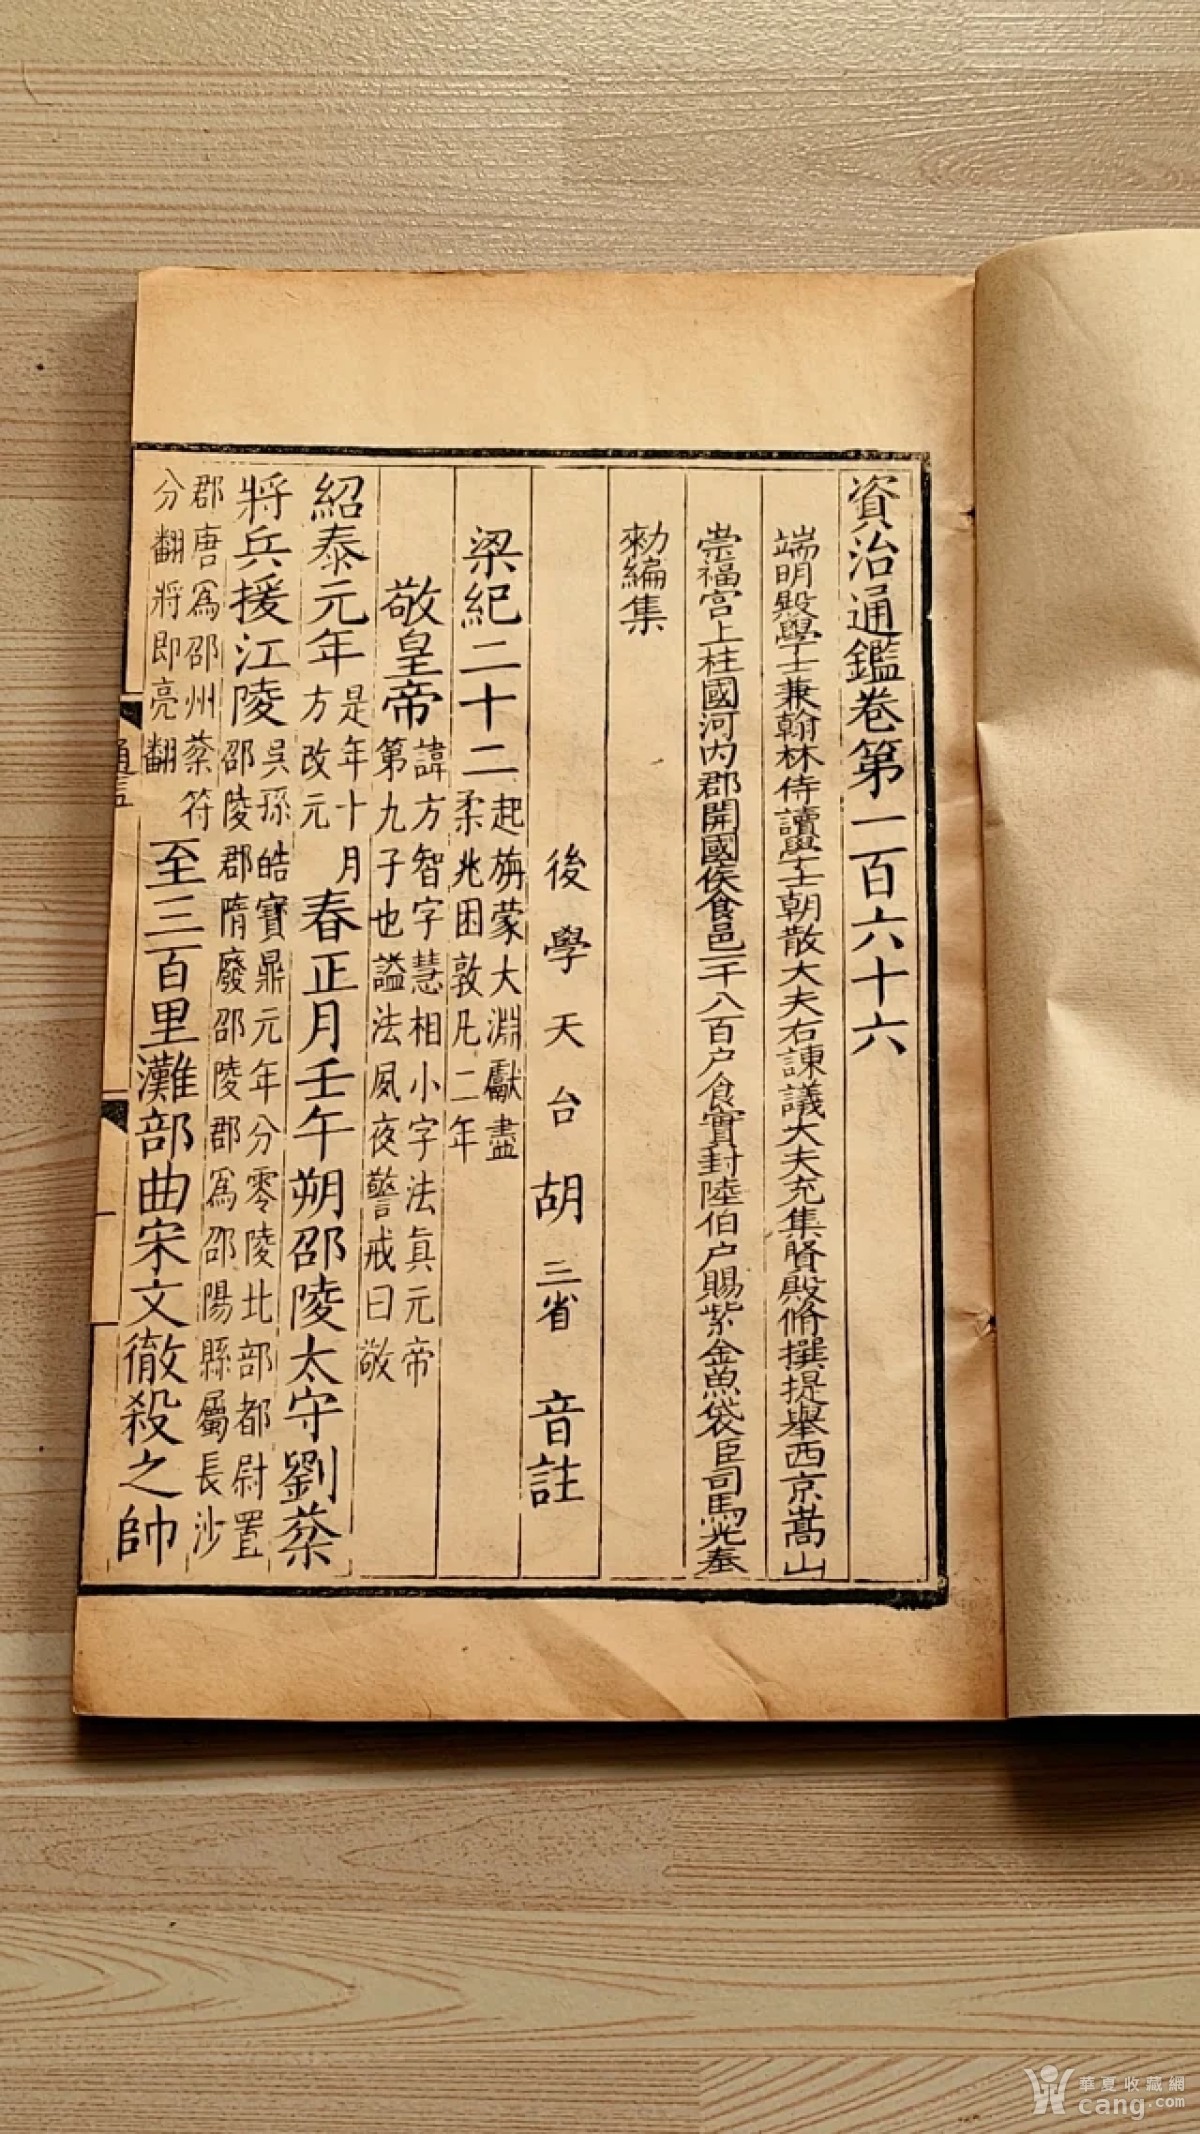 資治通鑑卷第一百六十六
端明殿學士兼翰林侍讀學士朝散大夫右諫議大夫充集賢殿脩撰提舉西京嵩山
崇福宮上柱國河内郡開國侯食邑一千八百户食實封陸伯户賜紫金魚袋臣司馬光奉
勑編集
後學天台胡三省音註
梁紀二十二
起旃蒙大淵獻盡
柔兆困敦凡二年
敬皇帝
諱方智字慧相小字法真元帝
第九子也謚法夙夜警戒曰敬
紹泰元年
是年十月
方改元
春正月壬午朔邵陵太守劉棻
將兵援江陵
吳孫皓寶鼎元年分零陵北部都尉置
邵陵郡隋廢邵陵郡爲邵陽縣屬長沙
郡唐爲邵州棻符
分翻將即亮翻
至三百里灘部曲宋文徹殺之帥
通鑑
華夏收藏網
cang.com